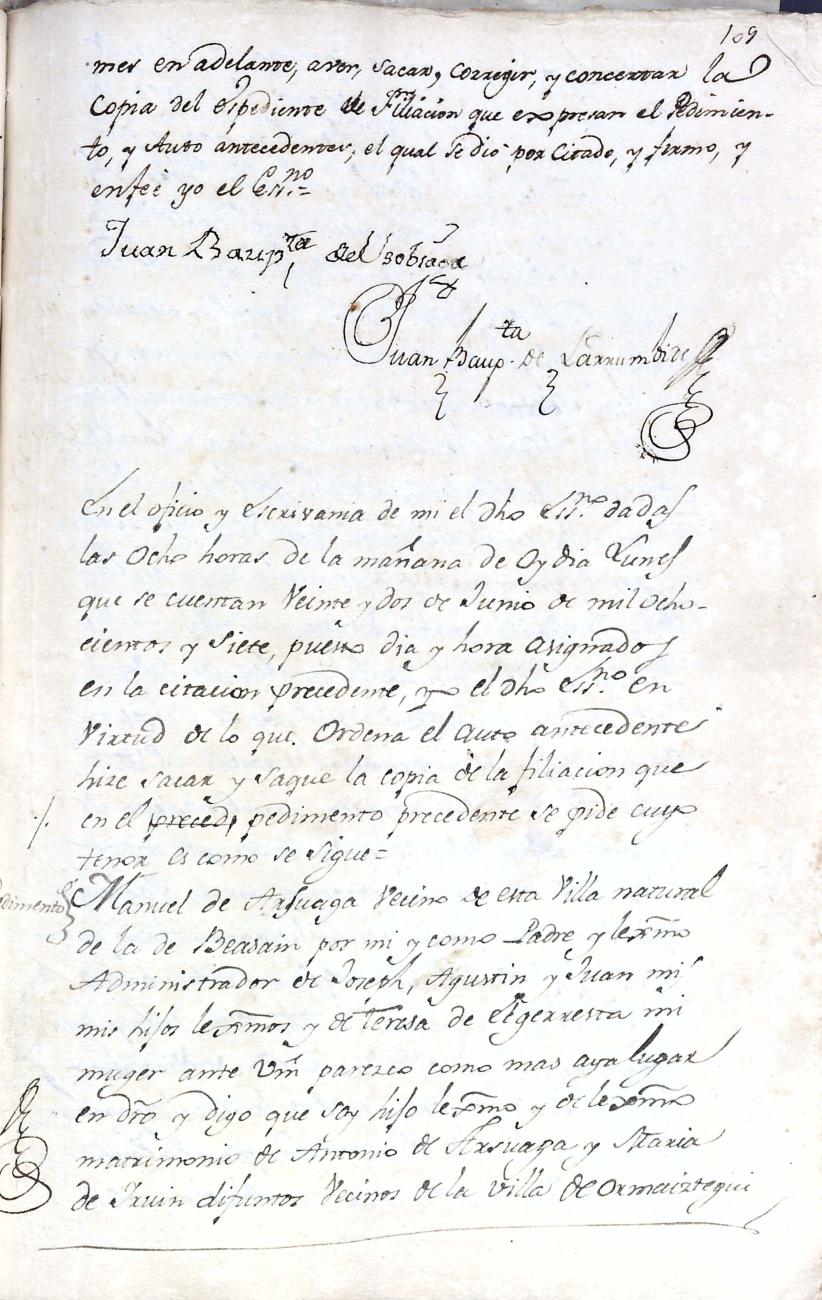 109
mes en adelante, aver, sacar, corregir, y concertar la
Copia del Espediente de Filiacion que expresan el Pedimien-
to, y Auto antecedentes, el qual se dió por Citado, y firmo, y
enfeé yo el Es.no =
Juan Baup.ta del Sobrado
Juan Baup.ta de Larrumbide
En el oficio y Escrivania de mi el dho Ess.no dadas
las Ocho horas de la mañana de Oy dia Lunes
que se cuentan Veinte y dos de Junio de mil Ocho-
cientos y Siete, puesto dia y hora asignados
en la citacion precedente, yo el dho Ess.no en
Virtud de lo que Ordena el auto antecedente
hize sacar y saque la copia de la filiacion que
en el preced, pedimento precedente se pide cuyo
tenor es como se sigue=
dimento Manuel de Arsuaga Vecino de esta Villa natural
de la de Beasain por mi y como Padre y lexmo
Administrador de Joseph, Agustin y Juan mi
mis hijos lexmos y de Teresa de Elgerresta mi
muger ante Vm parezco como mas aya lugar
en dro y digo que soy hijo lexmo y de lexmo
matrimonio de Antonio de Arsuaga y Maria
de Iruin difuntos Vecinos de la Villa de Ormaiztegui